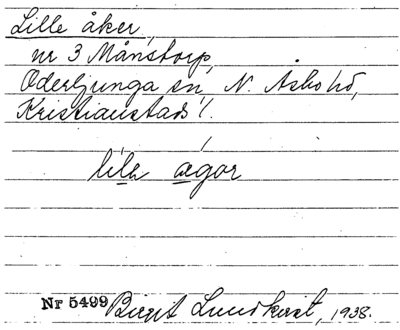 Lille åker,
nr 3 Månstorp,
Oderljunga sn, N. Åsbo hd,
Kristianstads l.
lilə ægor
Nr 5499 Birgit Lundkvist, 1938.